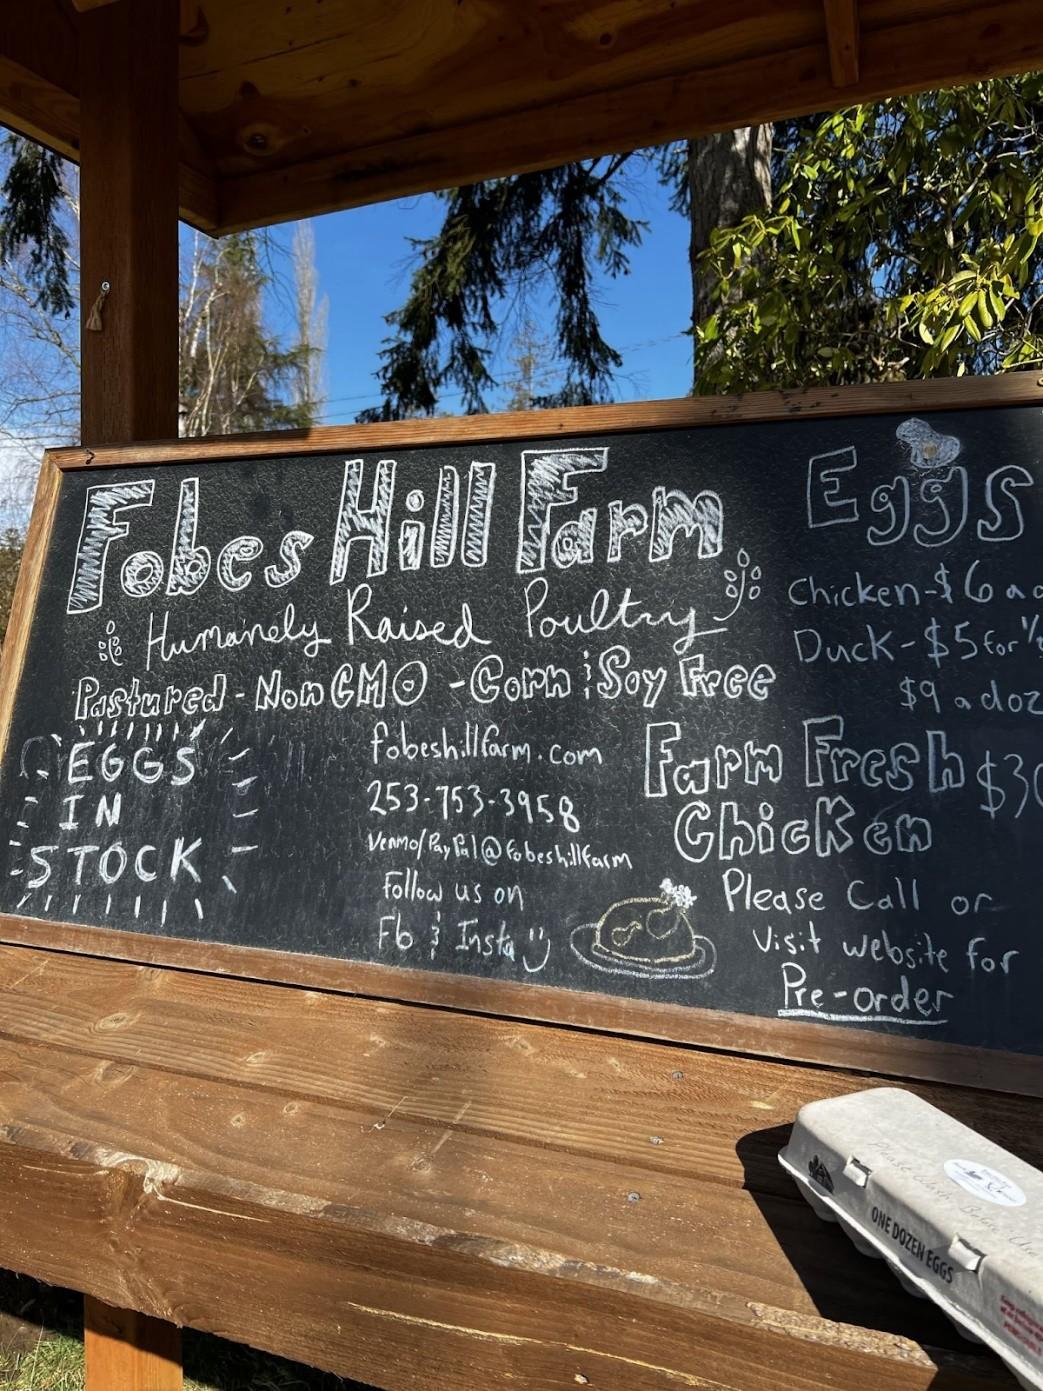 Fobes Hill Farm
Humanely Raised Poultry
Pastured - Non GMO - Corn & Soy Free
EGGS
IN
STOCK
fobeshillfarm.com
253-753-3958
Venmo/PayPal@fobeshillfarm
Follow us on
Fb & Insta
Eggs
Chicken-$6 a
Duck-$5 for
$9 a doz
Farm Fresh
Chicken
Please Call or
Visit website for
Pre-order
Please Wash Before
ONE DOZEN EGGS